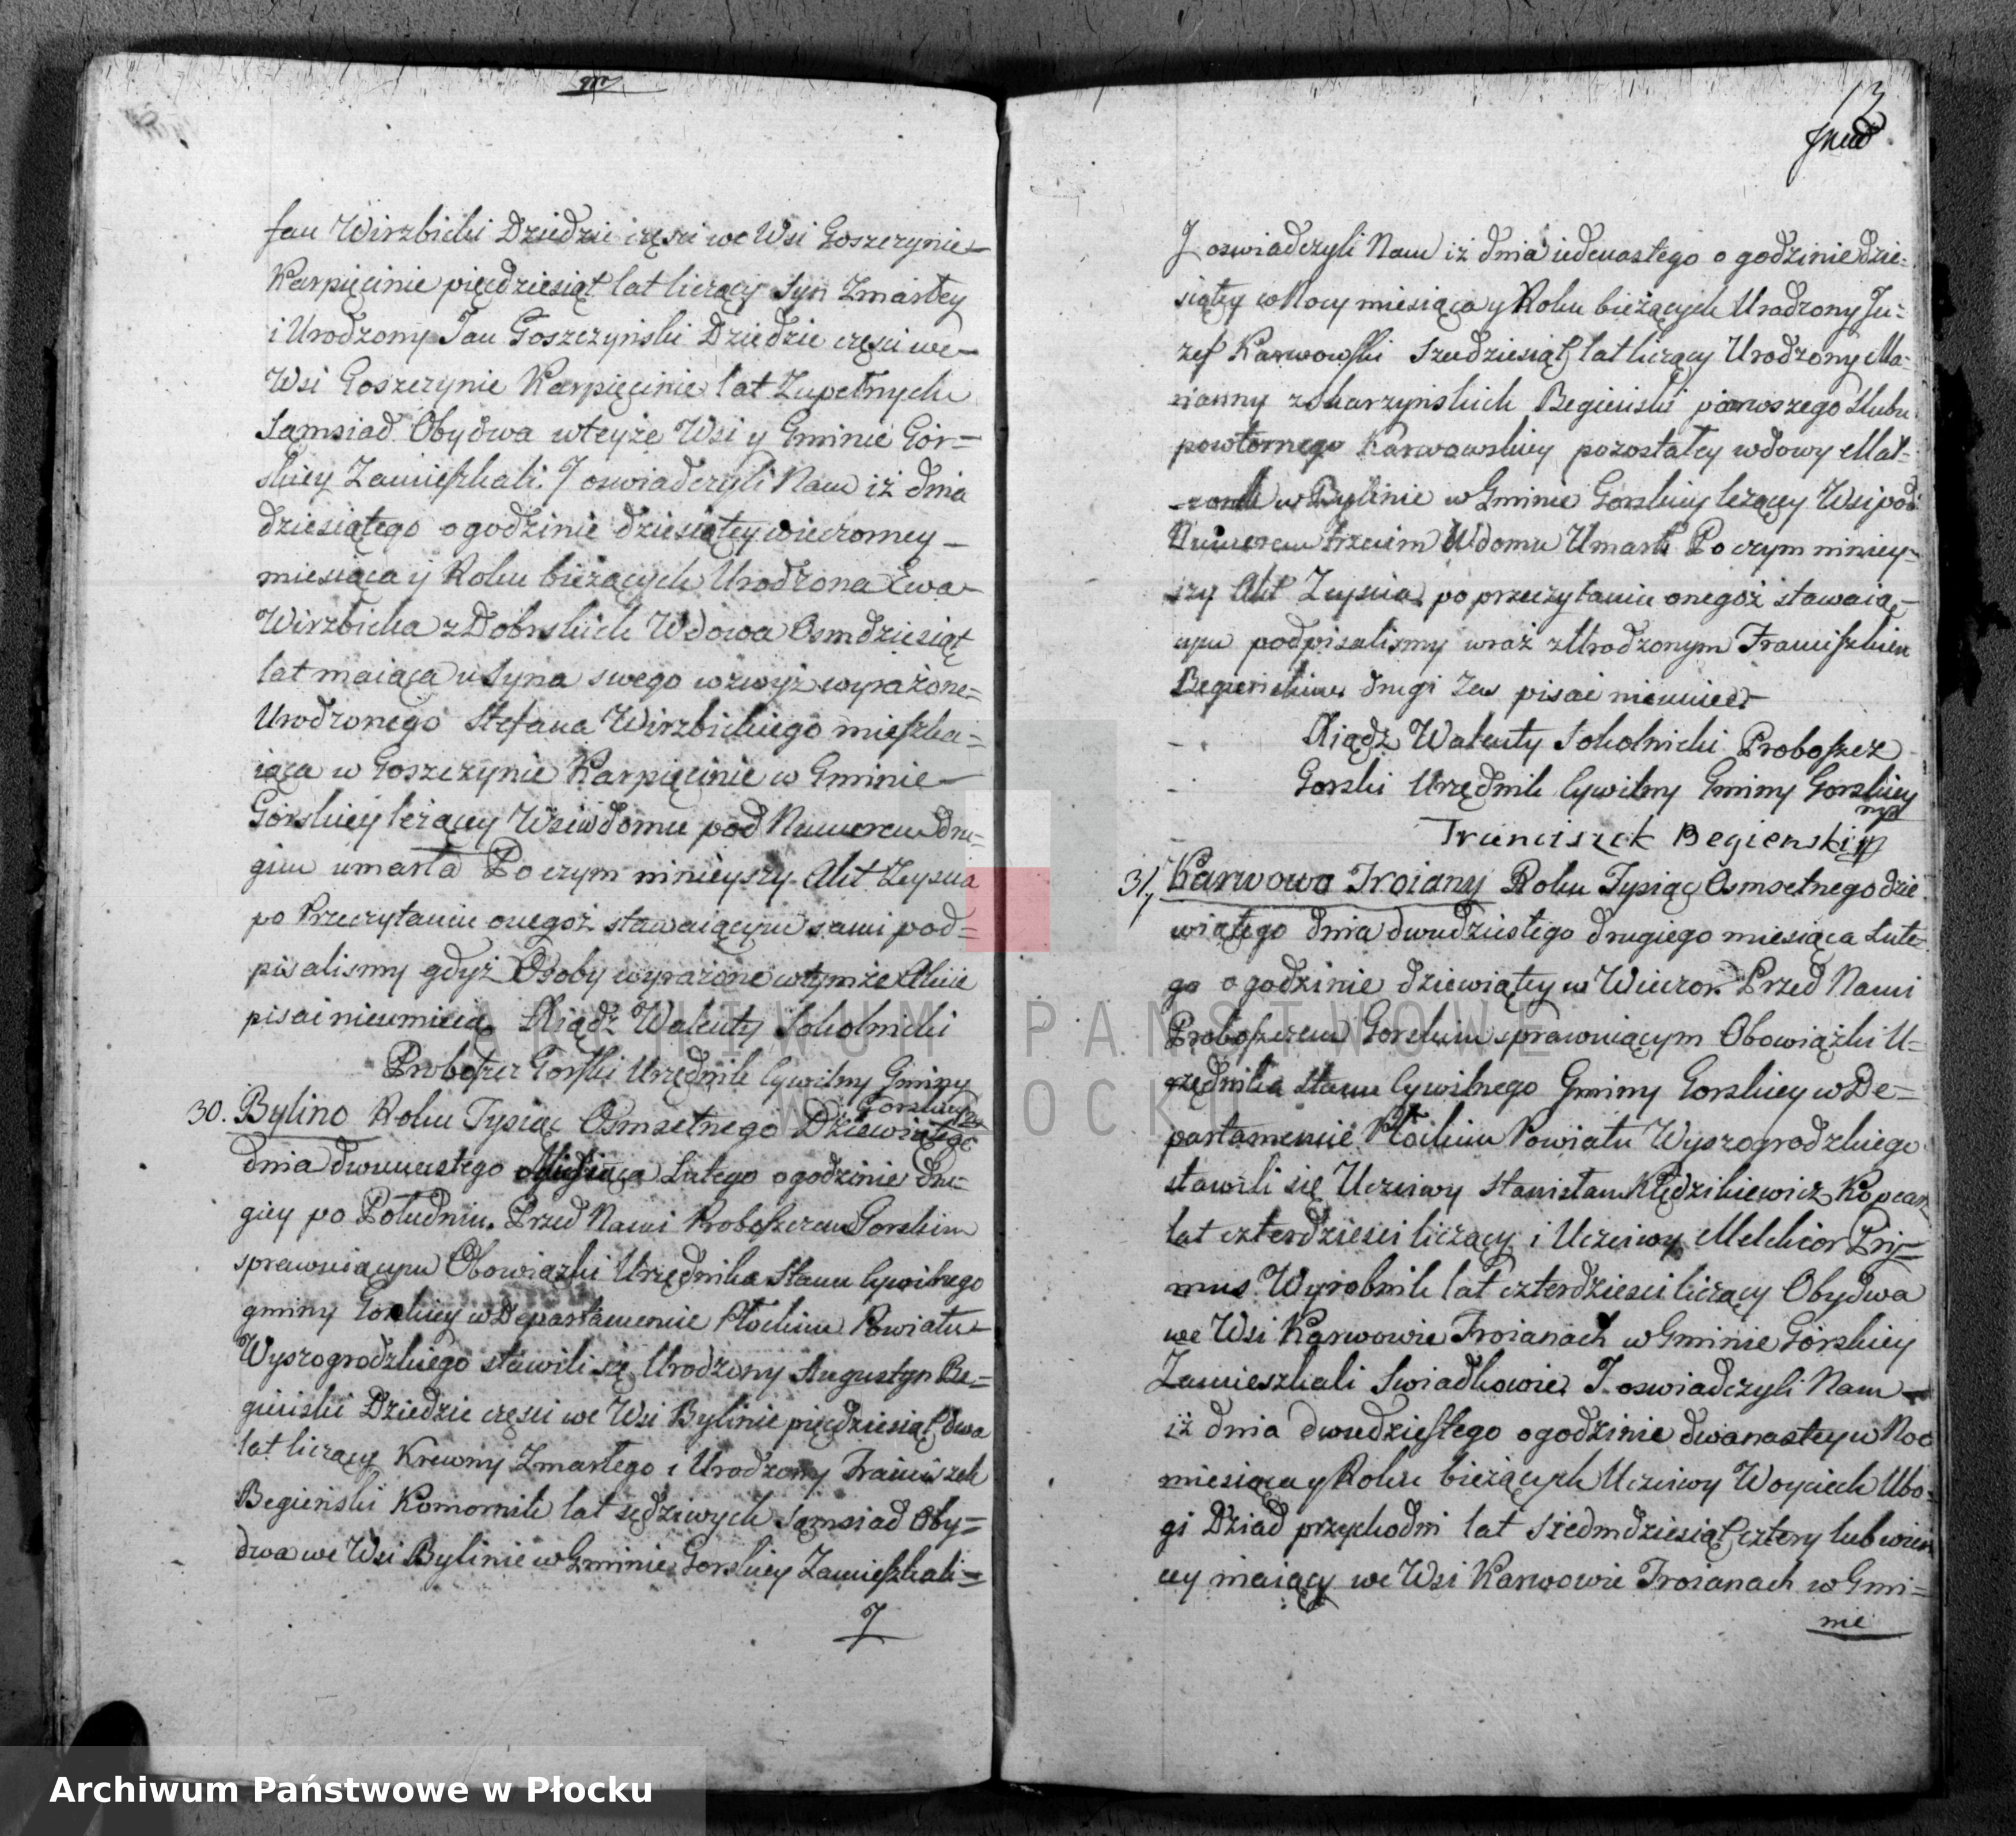 fan Wirzbicki Dziedzic części we Wsi Goszczynie
Karpięcinie pięćdziesiąt lat liczący Syn Zmarłey
i Urodzony Jan Goszczyński Dziedzic części we
Wsi Goszczynie Karpięcinie lat Zupełnych
Sąmsiad Obydwa wteyże Wsi y Gminie Gor=
skiey Zamieszkali. J oswiadczyli Nam iż dnia
dziesiątego o godzinie dziesiątey wieczorney
miesiąca y Roku bieżących Urodzona Ewa
Wirzbicka z Dobrskich Wdowa Osmdziesiąt
lat maiąca u Syna swego wzwyż wyrażone=
Urodzonego Stefana Wirzbickiego mieszka=
iąca w Goszczynie Karpięcinie w Gminie
Gorskiey leżącey Wsi w domu pod Numerem dru=
gim umarła Po czym ninieyszy Akt Zeyscia
po Przeczytaniu onegoż stawaiącym sami pod=
pisalismy gdyż Osoby wyrażone wtymże Akcie
pisać nieumieią. Xiądz Walenty Sokolnicki
Proboszcz Gorski Urzędnik Cywilny Gminy
Gorskiey
30. Bylino Roku Tysiąc Osmsetnego Dziewiątego
dnia dwunastego Miesiąca Lutego o godzinie dru=
giey po Południu. Przed Nami Proboszczem Gorskim
sprawuiącym Obowiązki Urzędnika Stanu Cywilnego
gminy Gorskiey w Departamencie Płockim Powiatu
Wyszogrodzkiego stawili się Urodzony Augustyn Be=
gieński Dziedzic części we Wsi Bylinie pięćdziesiąt dwa
lat liczący Krewny Zmarłego i Urodzony Franciszek
Begieński Komornik lat sędziwych Sąmsiad Oby=
dwa we Wsi Bylinie w Gminie Gorskiey Zamieszkali=
J
13
J oswiadczyli Nam iż dnia iedenastego o godzinie dzie=
siątey w Nocy miesiąca y Roku bieżących Urodzony Ju=
zef Karwowski Szesdziesiąt lat liczący Urodzoney Ma=
rianny z Skarzynskich Begieński pierwszego Slubu
powtornego Karwowskiey pozostałey wdowy Mał=
zonek w Bylinie w Gminie Gorskiey leżącey Wsi pod
Numerem trzecim W domu Umarł Po czym niniey=
szy Akt Zeyscia po przeczytaniu onegoż stawaią=
cym podpisalismy wraz z Urodzonym Franciszkiem
Begienskim drugi zas pisać nieumie
Xiądz Walenty Sokolnicki Proboszcz
Gorski Urzędnik Cywilny Gminy Gorskiey
mp
Franciszek Begienski mp
31, Karwowo Troiany Roku Tysiąc Osmsetnego dzie
wiątego dnia dwudziestego drugiego miesiąca Lute
go o godzinie dziewiątey w Wieczor. Przed Nami
Proboszczem Gorskim sprawuiącym Obowiązki U=
rzędnika Stanu Cywilnego Gminy Gorskiey w De=
partamencie Płockim Powiatu Wyszogrodzkiego
stawili się Uczciwy Stanisław Kłędzikiewicz Kopcarz
lat czterdziesci liczący i Uczciwy Melchior Pry=
mus Wyrobnik lat czterdziesci liczący Obydwa
we Wsi Karwowie Troianach w Gminie Gorskiey
Zamieszkali Swiadkowie. J oswiadczyli Nam
iż dnia dwudziestego o godzinie dwanastey w Noc
miesiąca y Roku bieżących Uczciwy Woyciech Ubo=
gi Dziad przychodni lat siedmdziesiąt cztery lub więc
cy maiący we Wsi Karwowie Troianach w Gmi=
nie
ARCHIWUM PAŃSTWOWE
W PŁOCKU
Archiwum Państwowe w Płocku